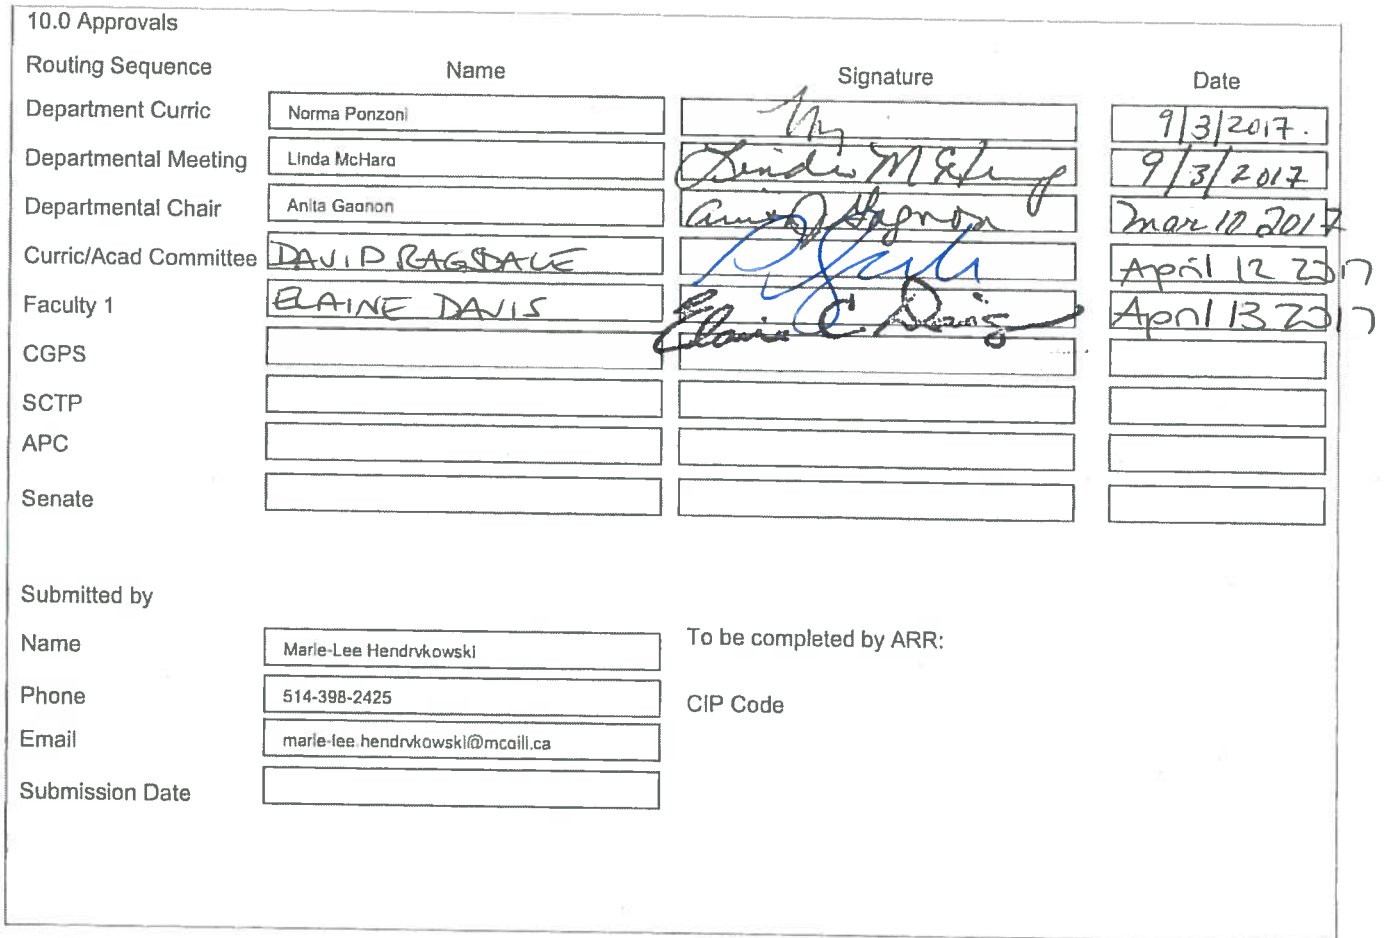 10.0 Approvals
Routing Sequence Name Signature Date
Department Curric Norma Ponzoni 9/3/2017.
Departmental Meeting Linda McHarg 9/3/2017
Departmental Chair Anita Gagnon Anita J Gagnon Mar 10 2017
Curric/Acad Committee DAVID RAGSDALE April 12 2017
Faculty 1 ELAINE DAVIS Elaine C Davis April 13 2017
CGPS
SCTP
APC
Senate
Submitted by
Name Marie-Lee Hendrykowski To be completed by ARR:
Phone 514-398-2425 CIP Code
Email marie-lee.hendrykowski@mcgill.ca
Submission Date